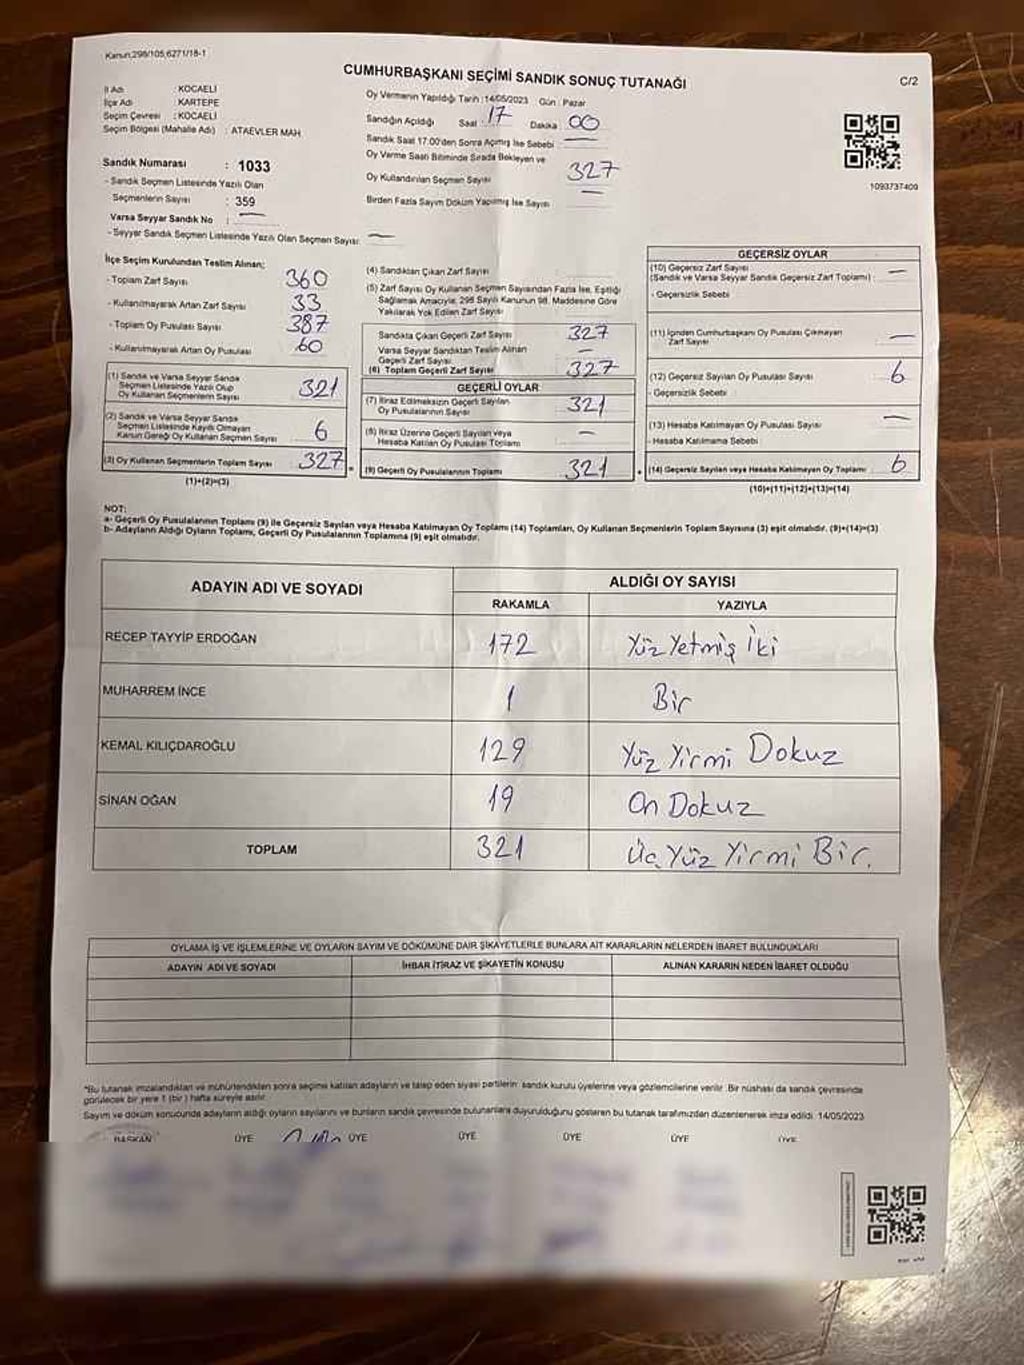 Kanun:298/105;6271/18-1
CUMHURBAŞKANI SEÇİMİ SANDIK SONUÇ TUTANAĞI
C/2
İl Adı : KOCAELİ
İlçe Adı : KARTEPE
Seçim Çevresi : KOCAELİ
Seçim Bölgesi (Mahalle Adı) : ATAEVLER MAH
Sandık Numarası : 1033
- Sandık Seçmen Listesinde Yazılı Olan
Seçmenlerin Sayısı : 359
Varsa Seyyar Sandık No : —
- Seyyar Sandık Seçmen Listesinde Yazılı Olan Seçmen Sayısı: —
Oy Vermenin Yapıldığı Tarih :14/05/2023 Gün : Pazar
Sandığın Açıldığı Saat : 17 Dakika : 00
Sandık Saat 17:00'den Sonra Açılmış İse Sebebi : —
Oy Verme Saati Bitiminde Sırada Bekleyen ve
Oy Kullandırılan Seçmen Sayısı 327
Birden Fazla Sayım Döküm Yapılmış İse Sayısı —
1093737409
İlçe Seçim Kurulundan Teslim Alınan;
- Toplam Zarf Sayısı 360
- Kullanılmayarak Artan Zarf Sayısı 33
- Toplam Oy Pusulası Sayısı 387
- Kullanılmayarak Artan Oy Pusulası 60
(1) Sandık ve Varsa Seyyar Sandık
Seçmen Listesinde Yazılı Olup
Oy Kullanan Seçmenlerin Sayısı 321
(2) Sandık ve Varsa Seyyar Sandık
Seçmen Listesinde Kaydı Olmayan
Kanun Gereği Oy Kullanan Seçmen Sayısı 6
(3) Oy Kullanan Seçmenlerin Toplam Sayısı 327
(1)+(2)=(3)
(4) Sandıktan Çıkan Zarf Sayısı
(5) Zarf Sayısı Oy Kullanan Seçmen Sayısından Fazla İse, Eşitliği
Sağlamak Amacıyla, 298 Sayılı Kanunun 98. Maddesine Göre
Yakılarak Yok Edilen Zarf Sayısı
Sandıkta Çıkan Geçerli Zarf Sayısı 327
Varsa Seyyar Sandıktan Teslim Alınan
Geçerli Zarf Sayısı —
(6) Toplam Geçerli Zarf Sayısı 327
GEÇERLİ OYLAR
(7) İtiraz Edilmeksizin Geçerli Sayılan
Oy Pusulalarının Sayısı 321
(8) İtiraz Üzerine Geçerli Sayılan veya
Hesaba Katılan Oy Pusulası Toplamı —
(9) Geçerli Oy Pusulalarının Toplamı 321
GEÇERSİZ OYLAR
(10) Geçersiz Zarf Sayısı
(Sandık ve Varsa Seyyar Sandık Geçersiz Zarf Toplamı) : —
- Geçersizlik Sebebi
(11) İçinden Cumhurbaşkanı Oy Pusulası Çıkmayan
Zarf Sayısı —
(12) Geçersiz Sayılan Oy Pusulası Sayısı 6
- Geçersizlik Sebebi
(13) Hesaba Katılmayan Oy Pusulası Sayısı —
- Hesaba Katılmama Sebebi
(14) Geçersiz Sayılan veya Hesaba Katılmayan Oy Toplamı 6
(10)+(11)+(12)+(13)=(14)
NOT:
a- Geçerli Oy Pusulalarının Toplamı (9) ile Geçersiz Sayılan veya Hesaba Katılmayan Oy Toplamı (14) Toplamları, Oy Kullanan Seçmenlerin Toplam Sayısına (3) eşit olmalıdır. (9)+(14)=(3)
b- Adayların Aldığı Oyların Toplamı, Geçerli Oy Pusulalarının Toplamına (9) eşit olmalıdır.
ADAYIN ADI VE SOYADI ALDIĞI OY SAYISI
RAKAMLA YAZIYLA
RECEP TAYYİP ERDOĞAN 172 Yüz Yetmiş İki
MUHARREM İNCE 1 Bir
KEMAL KILIÇDAROĞLU 129 Yüz Yirmi Dokuz
SİNAN OĞAN 19 On Dokuz
TOPLAM 321 Üç Yüz Yirmi Bir.
OYLAMA İŞ VE İŞLEMLERİNE VE OYLARIN SAYIM VE DÖKÜMÜNE DAİR ŞİKAYETLERLE BUNLARA AİT KARARLARIN NELERDEN İBARET BULUNDUKLARI
ADAYIN ADI VE SOYADI İHBAR İTİRAZ VE ŞİKAYETİN KONUSU ALINAN KARARIN NEDEN İBARET OLDUĞU
*Bu tutanak imzalandıktan ve mühürlendikten sonra seçime katılan adayların ve talep eden siyasi partilerin sandık kurulu üyelerine veya gözlemcilerine verilir. Bir nüshası da sandık çevresinde
görülecek bir yere 1 (bir) hafta süreyle asılır.
Sayım ve döküm sonucunda adayların aldığı oyların sayılarını ve bunların sandık çevresinde bulunanlara duyurulduğunu gösteren bu tutanak tarafımızdan düzenlenerek imza edildi. 14/05/2023
BAŞKAN ÜYE ÜYE ÜYE ÜYE ÜYE ÜYE